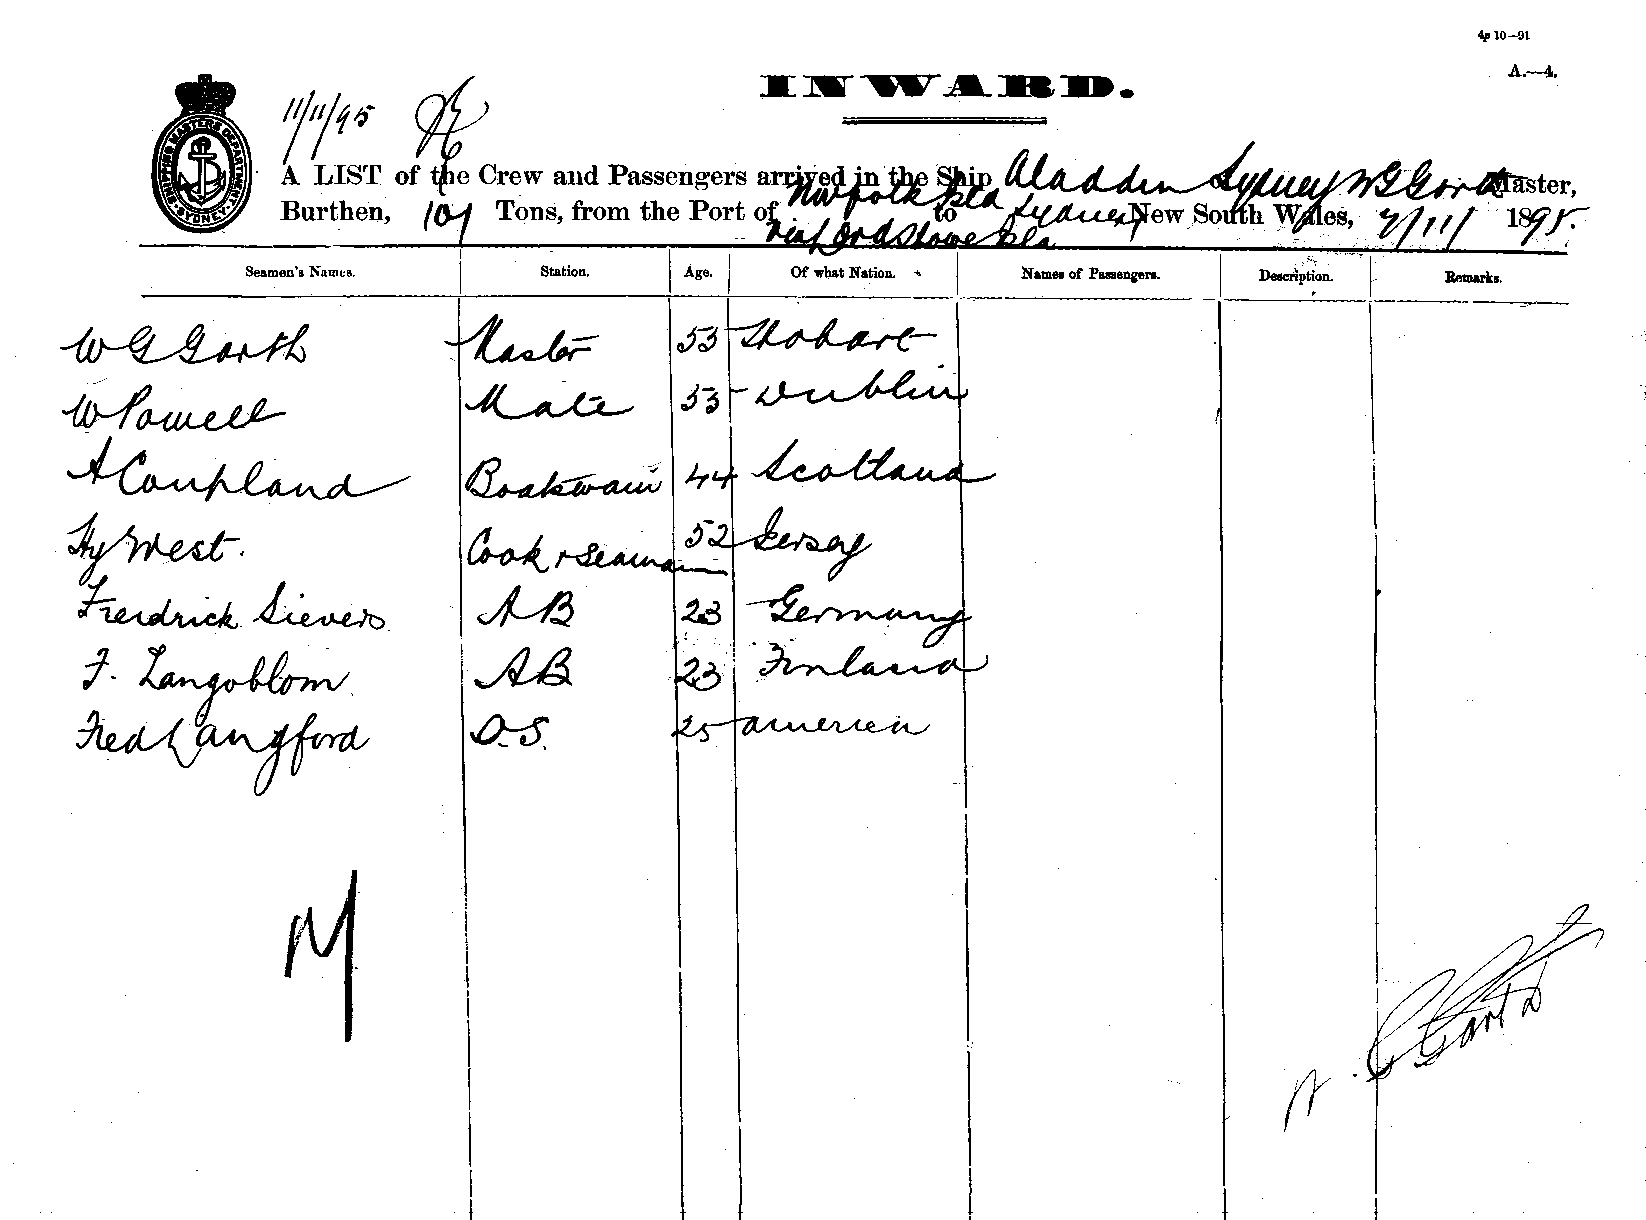 4p 10—91
A.—4.
INWARD.
11/11/95
SHIPPING MASTERS DEPARTMENT SYDNEY
A LIST of the Crew and Passengers arrived in the Ship Aladdin of Sydney W G Garth Master,
Burthen, 109 Tons, from the Port of Norfolk Isla to Sydney New South Wales, 7/11/ 1895.
via Lord Howe Isla
Seamen's Names. Station. Age. Of what Nation. Names of Passengers. Description. Remarks.
W G Garth Master 53 Hobart
W Powell Mate 53 Dublin
A Coupland Boatswain 44 Scotland
Hy West. Cook & Seaman 52 Jersey
Fredrick Sievers AB 23 Germany
F. Langoblom AB 23 Finland
Fred Langford O.S. 25 America
M
W. G Garth